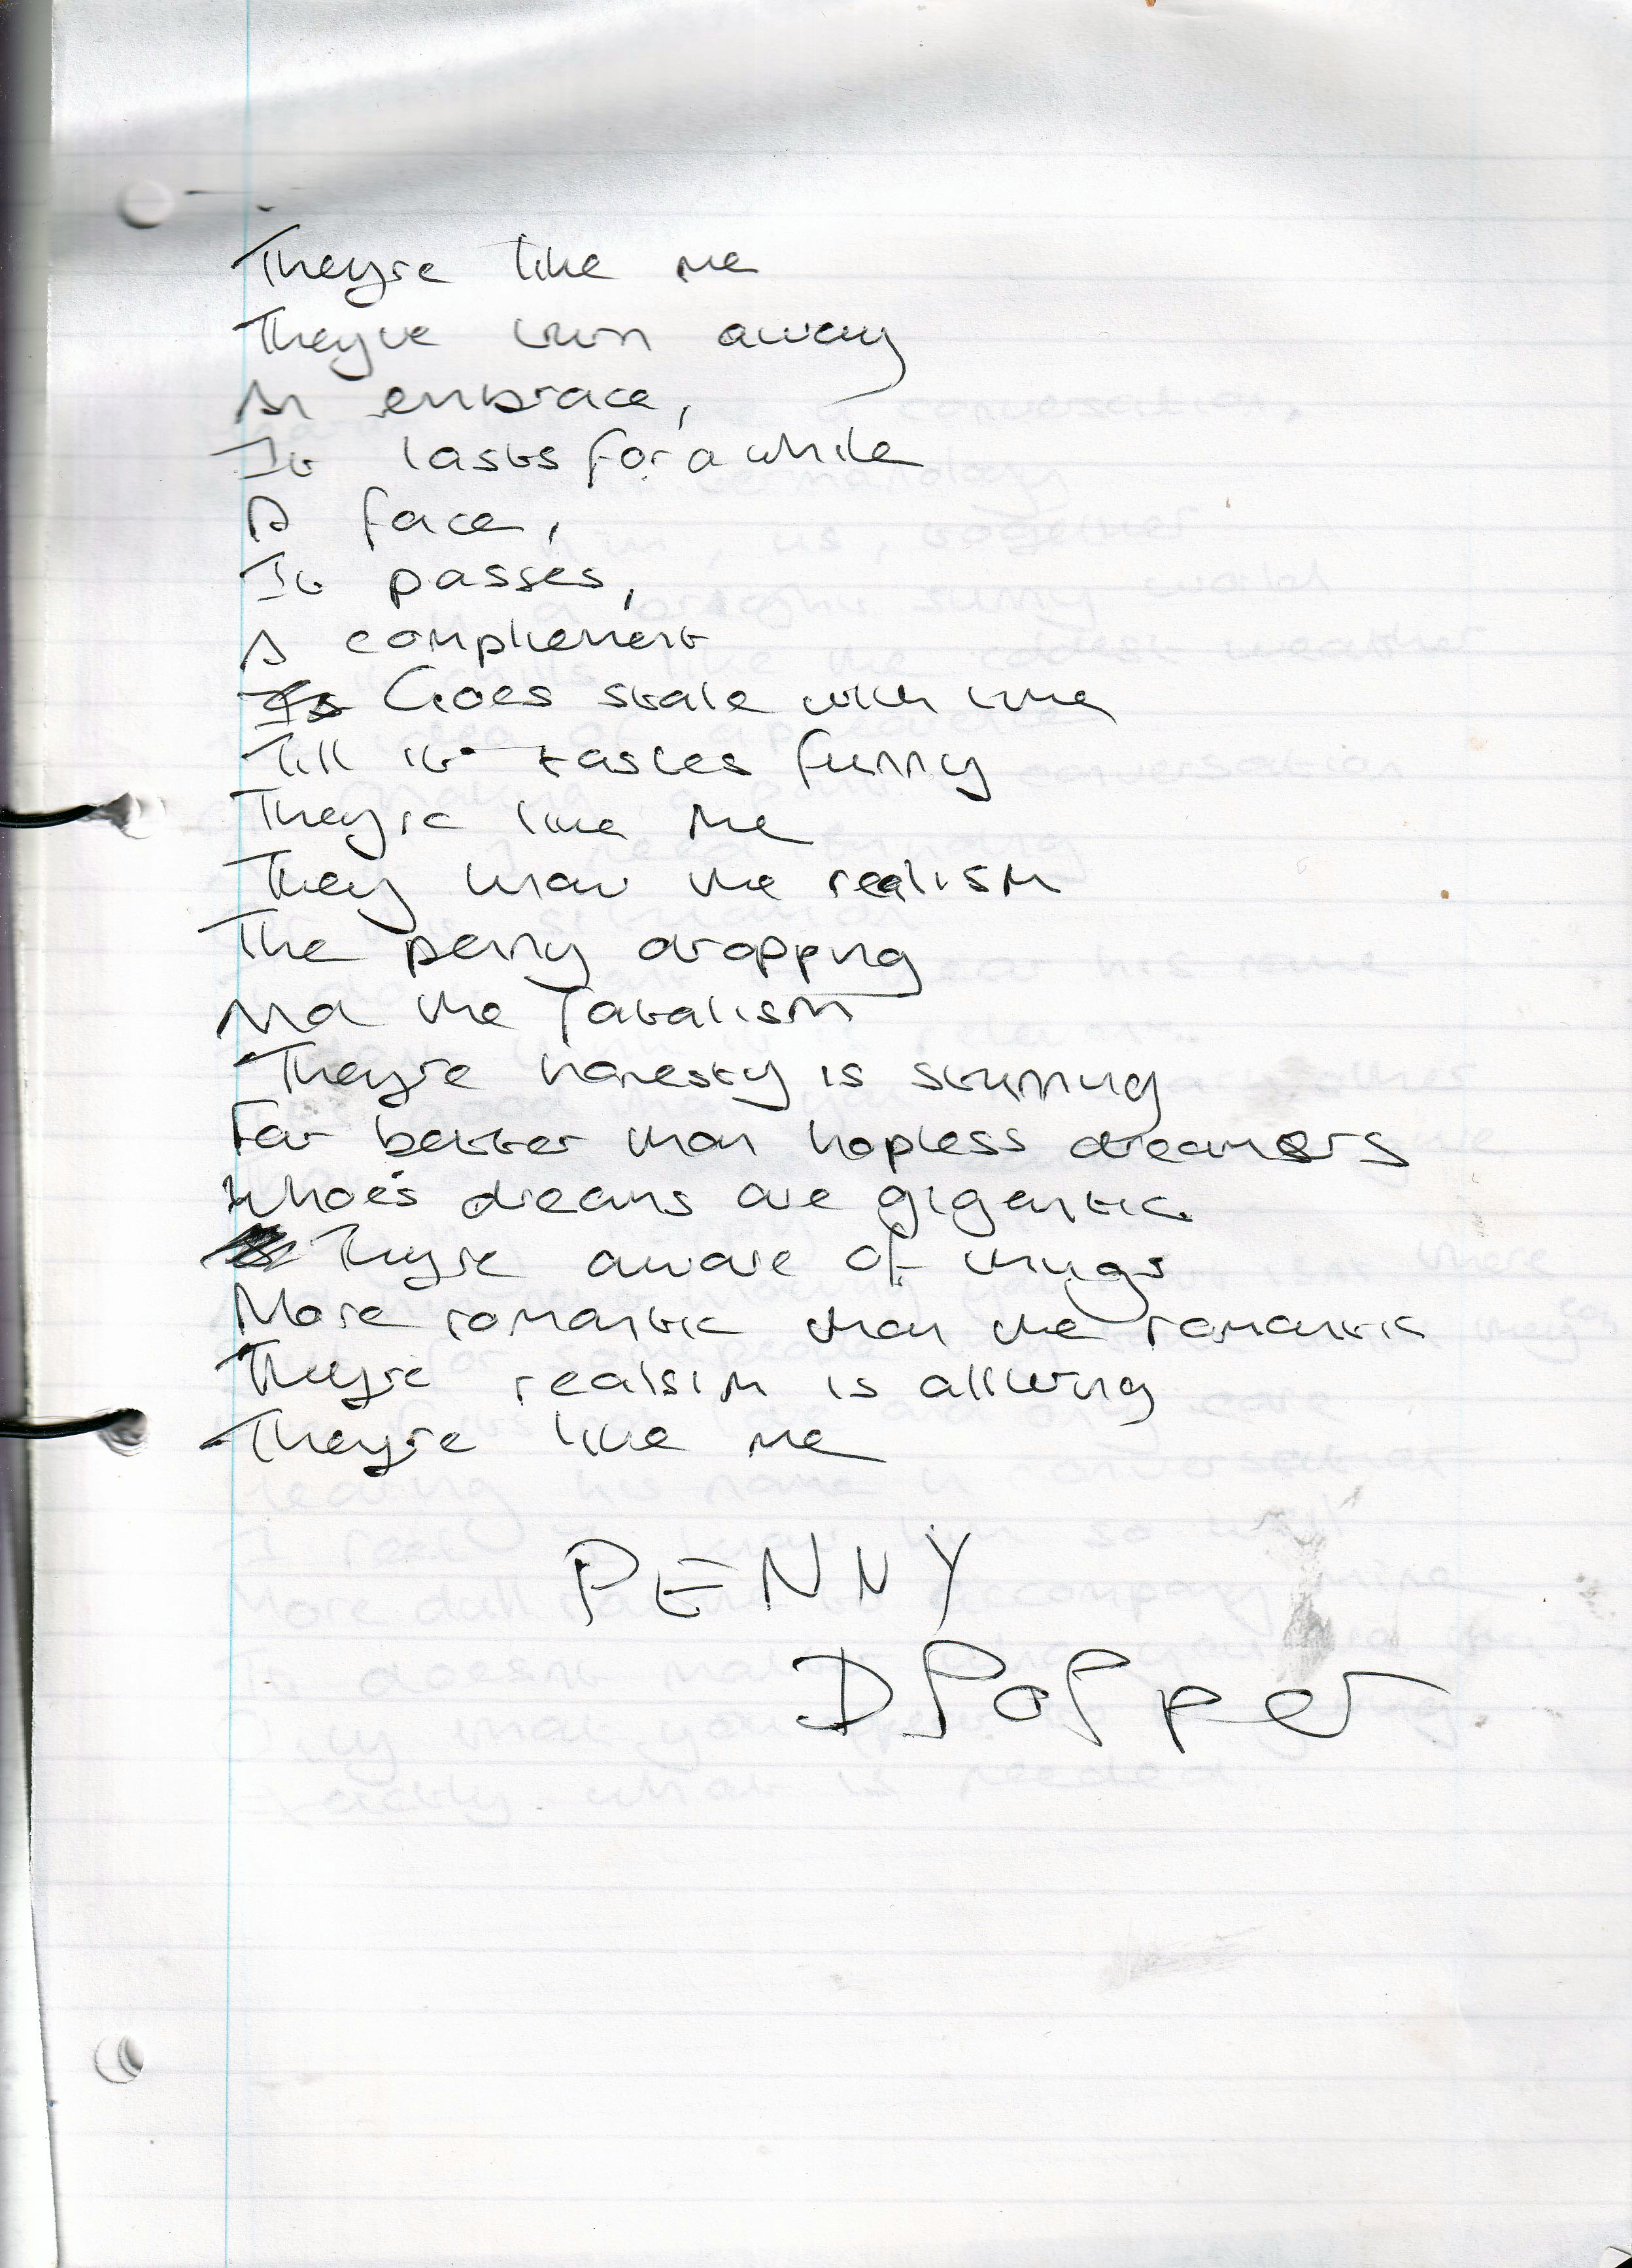 They're like me
They've run away
An embrace,
It lasts for a while
A face,
It passes,
A complement
Goes stale with time
Till it tastes funny
They're like me
They know the realism
The penny dropping
And the fatalism
They're honesty is stunning
Far better than hopless dreamers
Whoe's dreams are gigantic
They're aware of things
More romantic than the romantic
They're realsim is alluring
They're like me
PENNY
DROPPER